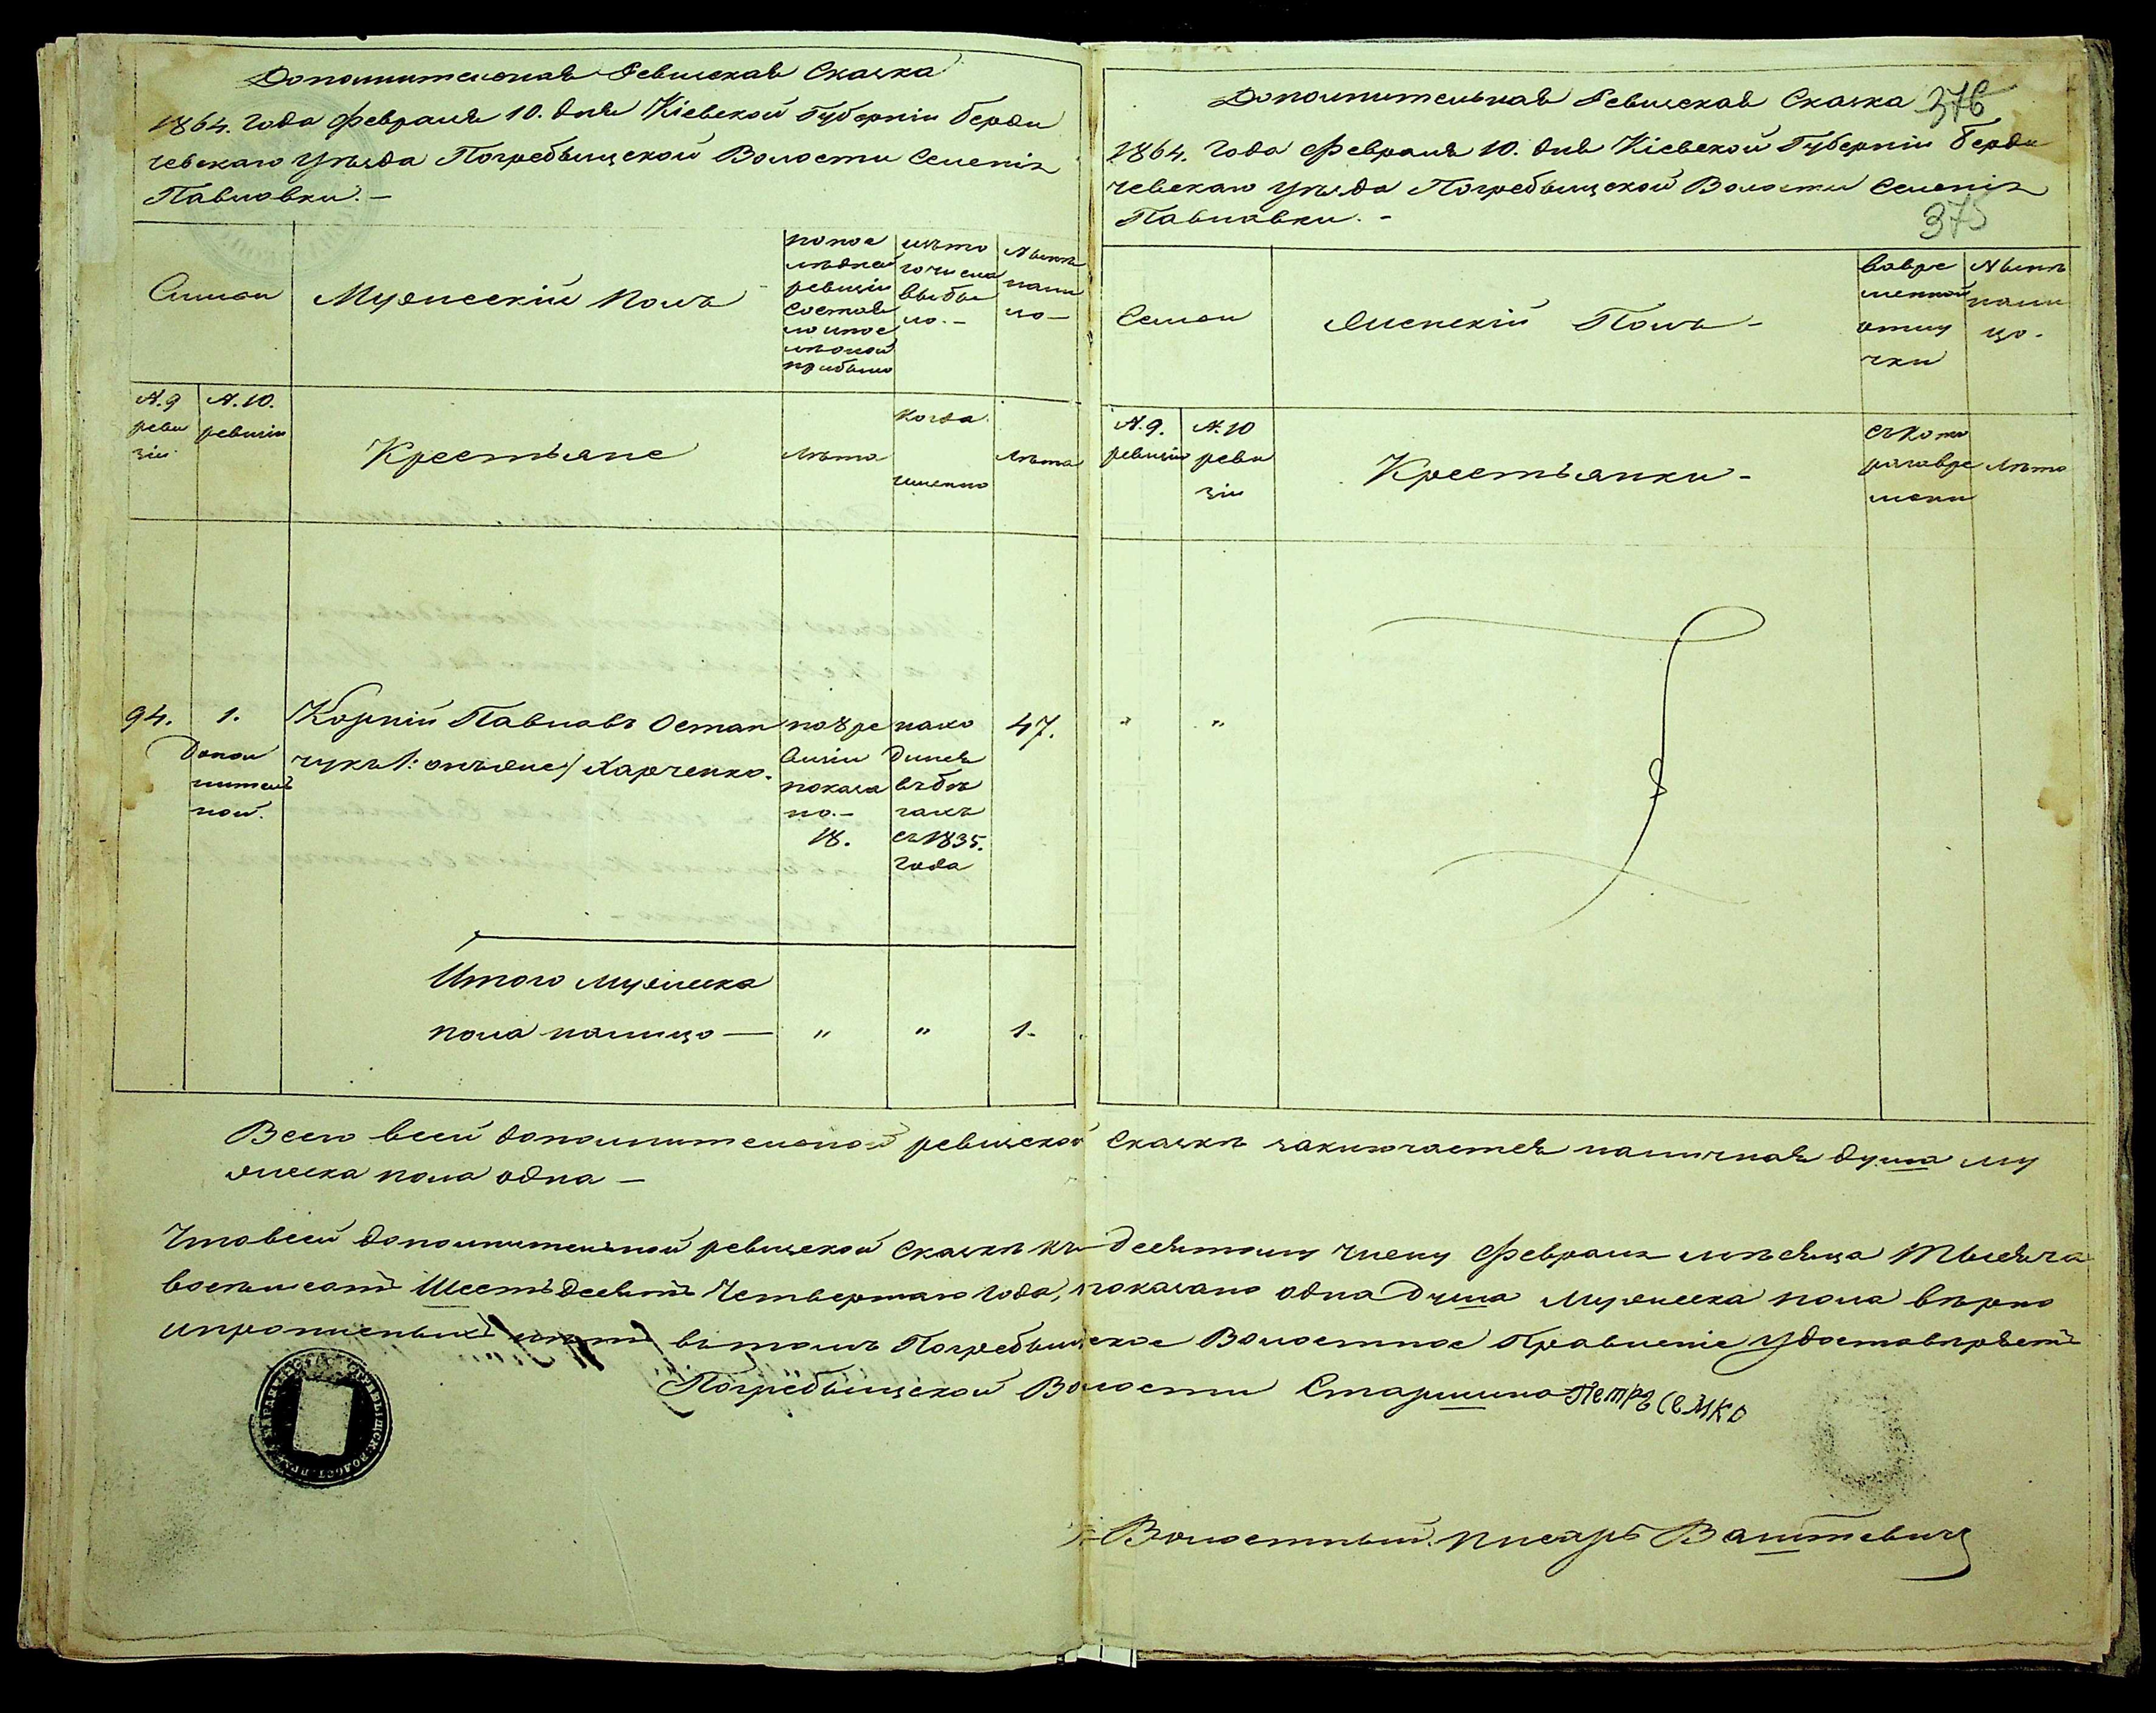 Дополнительная Ревизская Сказка
1864. года Февраля 10. дня Кіевской Губерніи Берди
чевскаго Уѣзда Погребыщской Волости Селенія
Павловки. —
Семьи
Мужескій полъ
по пос
лѣдней
ревизіи
состоя
ло и пос
лѣ оной
прибыло
изъ то
го числа
выбы
ло. —
Нынѣ
нали
цо —
N. 9
реви
зіи
N. 10.
ревизіи
Крестьяне
Лѣта
когда
именно
Лѣта
94.
1.
допол
нитель
ной.
Корній Павловъ Остап
чукъ /: онъ же / Харченко.
по 8 ре
визіи
показа
но. —
18.
нахо
дился
въ бѣ
гахъ
съ 1835.
года
47.
Итого мужеска
пола налицо — " " 1.
Дополнительная Ревизская Сказка 376
1864. года Февраля 10. дня Кіевской Губерніи Берди
чевскаго Уѣзда Погребыщской Волости Селенія
Павловки. —
375
Семьи
Женскій Полъ —
во вре
менной
отлу
чки
Нынѣ
нали
цо.
N. 9.
ревизіи
N. 10
реви
зіи
Крестьянки —
съ кото
раго вре
мени
Лѣта
" "
Всего в сей дополнительной ревизской Сказкѣ заключается наличная душа му
жеска пола одна —
Что в сей дополнительной ревизской Сказкѣ къ десятому числу Февраля мѣсяца Тысяча
восемьсотъ Шестьдесятъ Четвертаго года, показано одна душа Мужеска пола вѣрно
и въ томъ Погребыщское Волостное Правленіе удостовѣряетъ
Погребыщской Волости Старшина Петръ Семко
Волостный писарь Ваштевичъ